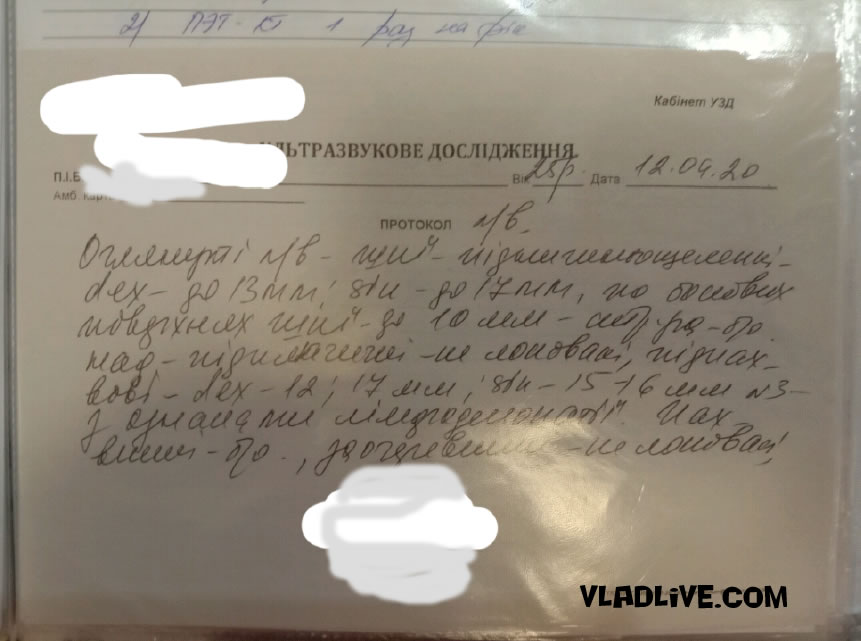 2) ПЭТ-КТ 1 раз на
Кабінет УЗД
УЛЬТРАЗВУКОВЕ ДОСЛІДЖЕННЯ
П.І.Б Вік 25р. Дата 12.04.20
Амб. карт
ПРОТОКОЛ л/в.
Оглянуті л/в - шиї - підщелепні -
dex - до 13 мм; sin - до 17 мм, по бокових
поверхнях шиї - до 10 мм -
над - підключичні - не локовані, підпах-
вові - dex - 12; 17 мм; sin - 15 16 мм N3 -
з ознаками лімфаденопатії. Пах
винні - б/о., заочеревинні - не локовані,
VLADLiVE.COM